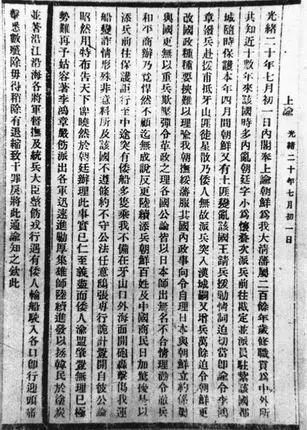 上諭　光緒二十年七月初一日
光緒二十年七月初一日內閣奉上諭朝鮮爲我大清藩屬二百餘年歲修職貢爲中外所
共知近十數年來該國時多內亂朝廷字小爲懷疊次派兵前往戡定並派員駐紮該國都
城隨時保護本年四月間朝鮮又有土匪變亂該國王請兵援勦情詞迫切當卽諭令李鴻
章撥兵赴援甫抵牙山匪徒星散乃倭人無故派兵突入漢城嗣又增兵萬餘迫令朝鮮更
改國政種種要挾難以理喻我朝撫綏藩服其國內政事向令自理日本與朝鮮立約係屬
與國更無以重兵欺壓强令革政之理各國公論皆以日本師出無名不合情理勸令撤兵
和平商辦乃竟悍然不顧迄無成說反更陸續添兵朝鮮百姓及中國商民日加驚擾是以
添兵前往保護詎行至中途突有倭船多隻乘我不備在牙山口外海面開砲轟擊傷我運
船變詐情形殊非意料所及該國不遵條約不守公法任意鴟張專行詭計釁開自彼公論
昭然用特布告天下俾曉然於朝廷辦理此事實已仁至義盡而倭人渝盟肇釁無理已極
勢難再予姑容著李鴻章嚴飭派出各軍迅速進勦厚集雄師陸續進發以拯韓民於塗炭
並著沿江沿海各將軍督撫及統兵大臣整飭戎行遇有倭人輪船駛入各口卽行迎頭痛
擊悉數殲除毋得稍有退縮致干罪戾將此通諭知之欽此